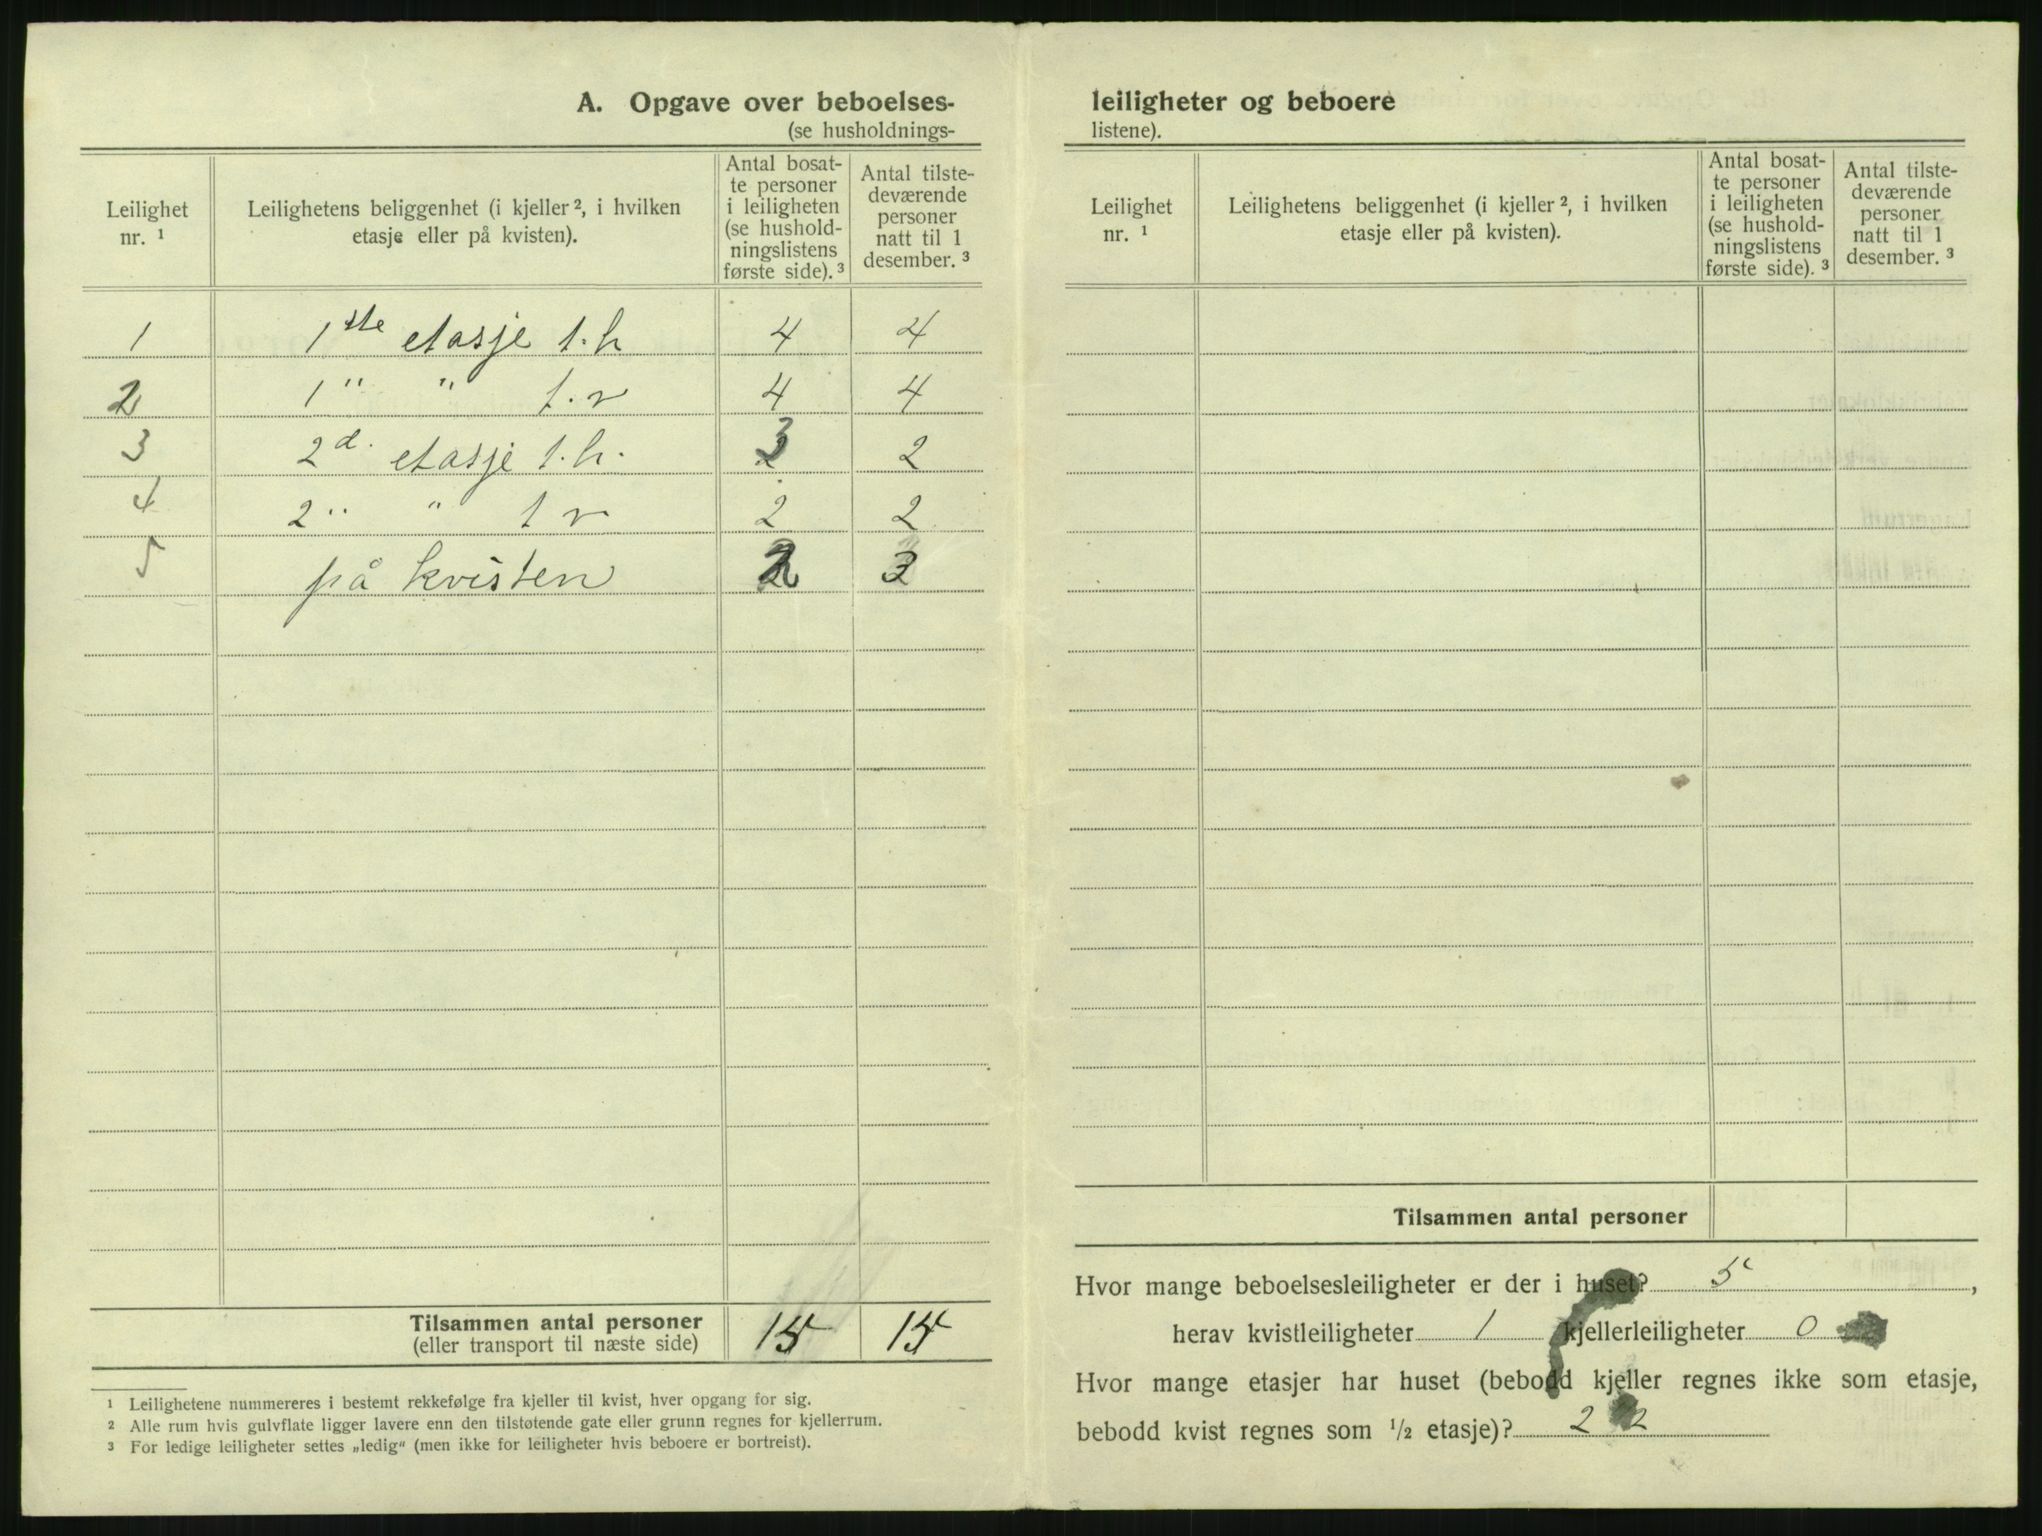 A. Opgave over beboelses-
(se husholdnings-
Leilighet nr. ¹
Leilighetens beliggenhet (i kjeller ², i hvilken etasje eller på kvisten).
Antal bosat-
te personer
i leiligheten
(se hushold-
ningslistens
første side). ³
Antal tilste-
deværende
personer
natt til 1
desember. ³
1 1ste etasje t.h 4 4
2 1 " " t.v 4 4
3 2d. etasje t.h. 3 2
4 2 " " t v 2 2
5 på kvisten 2 3
Tilsammen antal personer 15 15
(eller transport til næste side)
¹ Leilighetene nummereres i bestemt rekkefølge fra kjeller til kvist, hver opgang for sig.
² Alle rum hvis gulvflate ligger lavere enn den tilstøtende gate eller grunn regnes for kjellerrum.
³ For ledige leiligheter settes „ledig" (men ikke for leiligheter hvis beboere er bortreist).
leiligheter og beboere
listene).
Leilighet nr. ¹
Leilighetens beliggenhet (i kjeller ², i hvilken etasje eller på kvisten).
Antal bosat-
te personer
i leiligheten
(se hushold-
ningslistens
første side). ³
Antal tilste-
deværende
personer
natt til 1
desember. ³
Tilsammen antal personer
Hvor mange beboelsesleiligheter er der i huset? 5 ,
herav kvistleiligheter 1 kjellerleiligheter 0
Hvor mange etasjer har huset (bebodd kjeller regnes ikke som etasje,
bebodd kvist regnes som ½ etasje)? 2 2